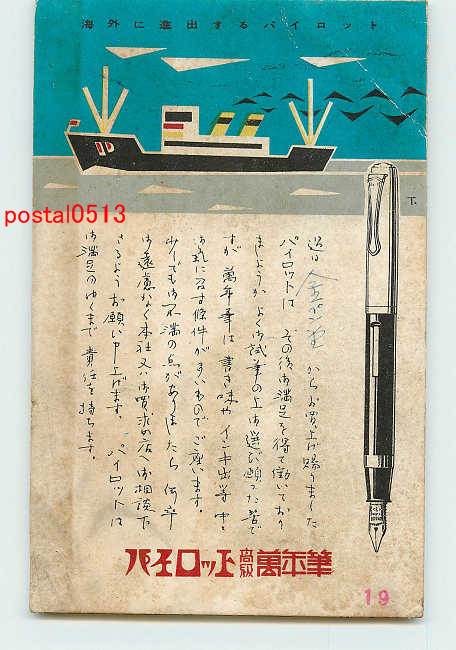 海外に進出するパイロット
postal0513
P
T.
過日 からお買上げ賜りました
パイロットは その後御満足を得て働いており
ましょうか よく御試筆の上御選び願った筈で
すが 萬年筆は 書き味や インキ出等 中々
御気に召す條件がまいものでございます。
少しでも御不満の点がありましたら 何卒
御遠慮なく本社又は御買求め店へ御相談下
さるようお願い申上げます。 パイロットは
御満足のゆくまで 責任を持ちます。
パイロット 高級 萬年筆
19